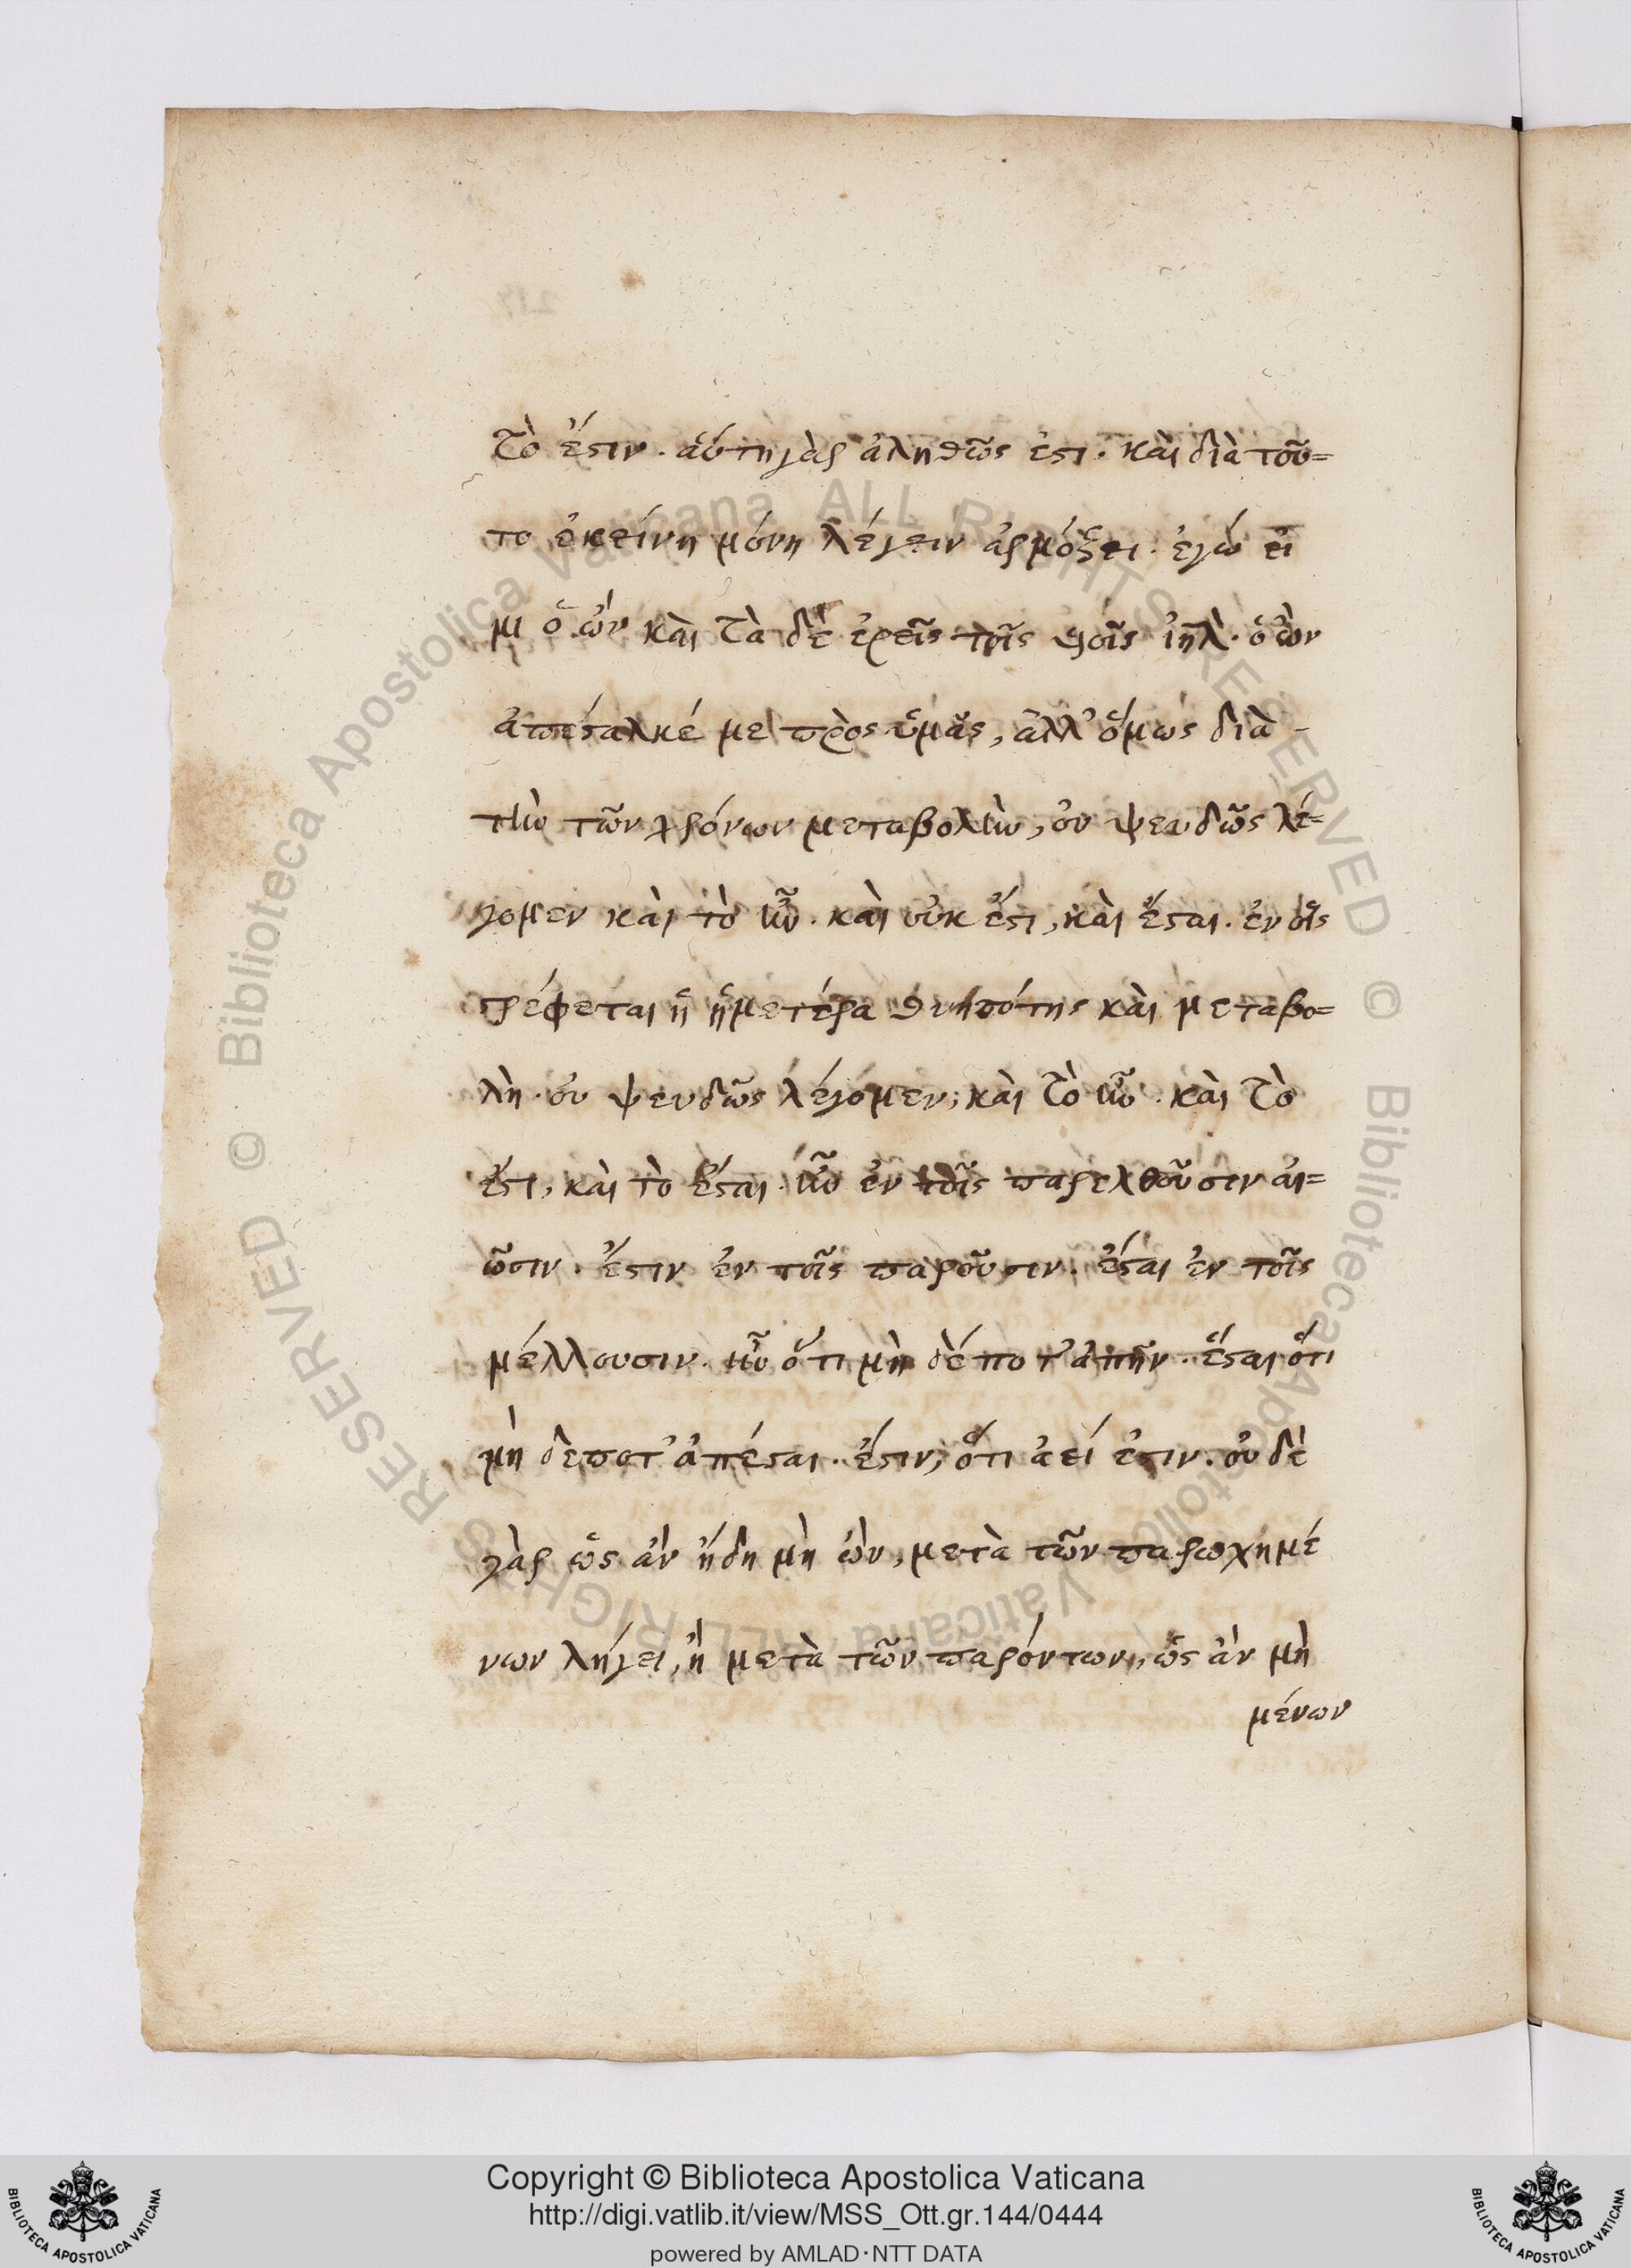 τὸ ἔστιν. αὕτη γὰρ ἀληθῶς ἐστι. καὶ διὰ τοῦ=
το ἐκείνη μόνη λέγειν ἁρμόξει. ἐγώ εἰ
μι ὁ ὢν καὶ τὰ δὲ ἐρεῖς τοῖς υἱοῖς ἰηλ. ὁ ὢν
ἀπέσταλκέ με πρὸς ὑμᾶς, ἀλλ' ὅμως διὰ -
τὴν τῶν χρόνων μεταβολὴν, οὐ ψευδῶς λέ=
γομεν καὶ τὸ ἦν. καὶ οὐκ ἔστι, καὶ ἔσται. ἐν οἷς
στρέφεται ἡ ἡμετέρα θνητότης καὶ μεταβο=
λὴ. οὐ ψευδῶς λέγομεν, καὶ τὸ ἦν. καὶ τὸ
ἔστι, καὶ τὸ ἔσται. ἦν ἐν τοῖς παρελθοῦσιν αἰ=
ῶσιν. ἔστιν ἐν τοῖς παροῦσιν. ἔσται ἐν τοῖς
μέλλουσιν. ἦν ὅτι μὴ δέποτ' ἀπῆν. ἔσται ὅτι
μὴ δεποτ' ἀπέσται. ἔστιν, ὅτι ἀεί ἐστιν. οὐ δὲ
γὰρ ὡς ἂν ἤδη μὴ ὢν, μετὰ τῶν παρωχημέ
νων λήγει, ἢ μετὰ τῶν παρόντων, ὡς ἂν μὴ
μένων
Copyright © Biblioteca Apostolica Vaticana
http://digi.vatlib.it/view/MSS_Ott.gr.144/0444
powered by AMLAD·NTT DATA
BIBLIOTECA APOSTOLICA VATICANA
BIBLIOTECA APOSTOLICA VATICANA
© Biblioteca Apostolica Vaticana ALL RIGHTS RESERVED
© Biblioteca Apostolica Vaticana ALL RIGHTS RESERVED